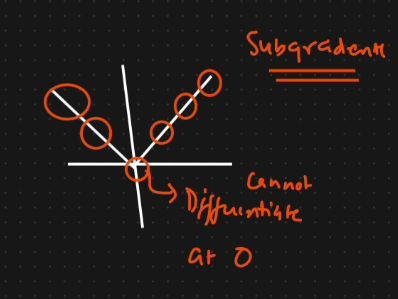 Subgradents
Cannot
Differentiate
at 0